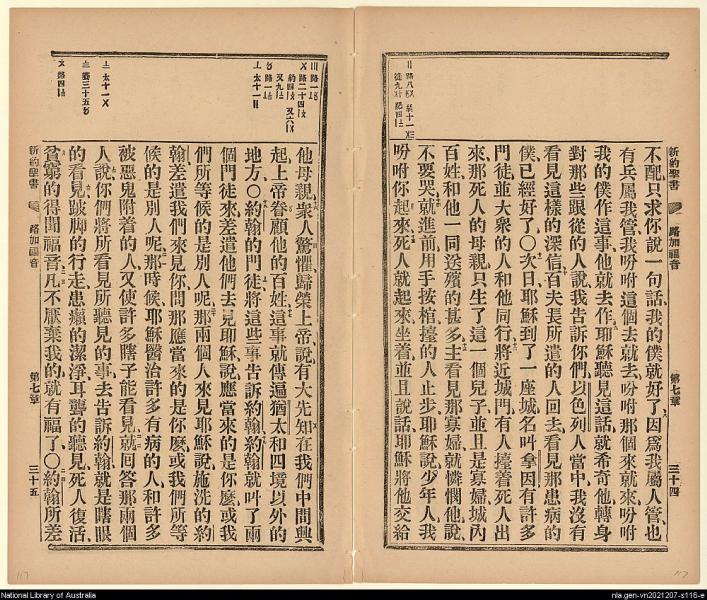 新約聖書
路加福音
第七章
三十四
不配、只求你說一句話、我的僕就好了、因爲我屬人管、也
有兵屬我管、我吩咐這個去就去、吩咐那個來就來、吩咐
我的僕作這事、他就去作、耶穌聽見這話、就希奇他、轉身
對那些跟從的人說、我告訴你們、以色列人當中、我沒有
看見這樣的深信、百夫長所遣的人回去、看見那患病的
僕已經好了、○次日耶穌到了一座城、名叫拿因、有許多
門徒並大衆的人和他同行、將近城門、有人擡着死人出
來、那死人的母親只生了這一個兒子、並且是寡婦、城內
百姓和他一同送殯的甚多、主看見那寡婦就憐憫他、說、
不要哭、就進前用手按棺、擡的人止步、耶穌說、少年人、我
吩咐你起來、死人就起來坐着、並且說話、耶穌將他交給
他母親、衆人驚懼、歸榮上帝、說、有大先知在我們中間興
起、上帝眷顧他的百姓、這事就傳遍猶太和四境以外的
地方、○約翰的門徒將這些事告訴約翰、約翰就叫了兩
個門徒來、差遣他們去見耶穌說、應當來的是你麽、或我
們所等候的是別人呢、那兩個人來見耶穌說、施洗的約
翰差遣我們來見你、問那應當來的是你麽、或我們所等
候的是別人呢、那時候、耶穌醫治許多有病的人、和許多
被惡鬼附着的人、又使許多瞎子能看見、就回答那兩個
人說、你們將所看見所聽見的事、去告訴約翰、就是瞎眼
的看見、跛脚的行走、患癩的潔淨、耳聾的聽見、死人復活、
貧窮的得聞福音、凡不厭棄我的、就有福了、○約翰所差
新約聖書
路加福音
第七章
三十五
National Library of Australia
nla.gen-vn2021207-s116-e